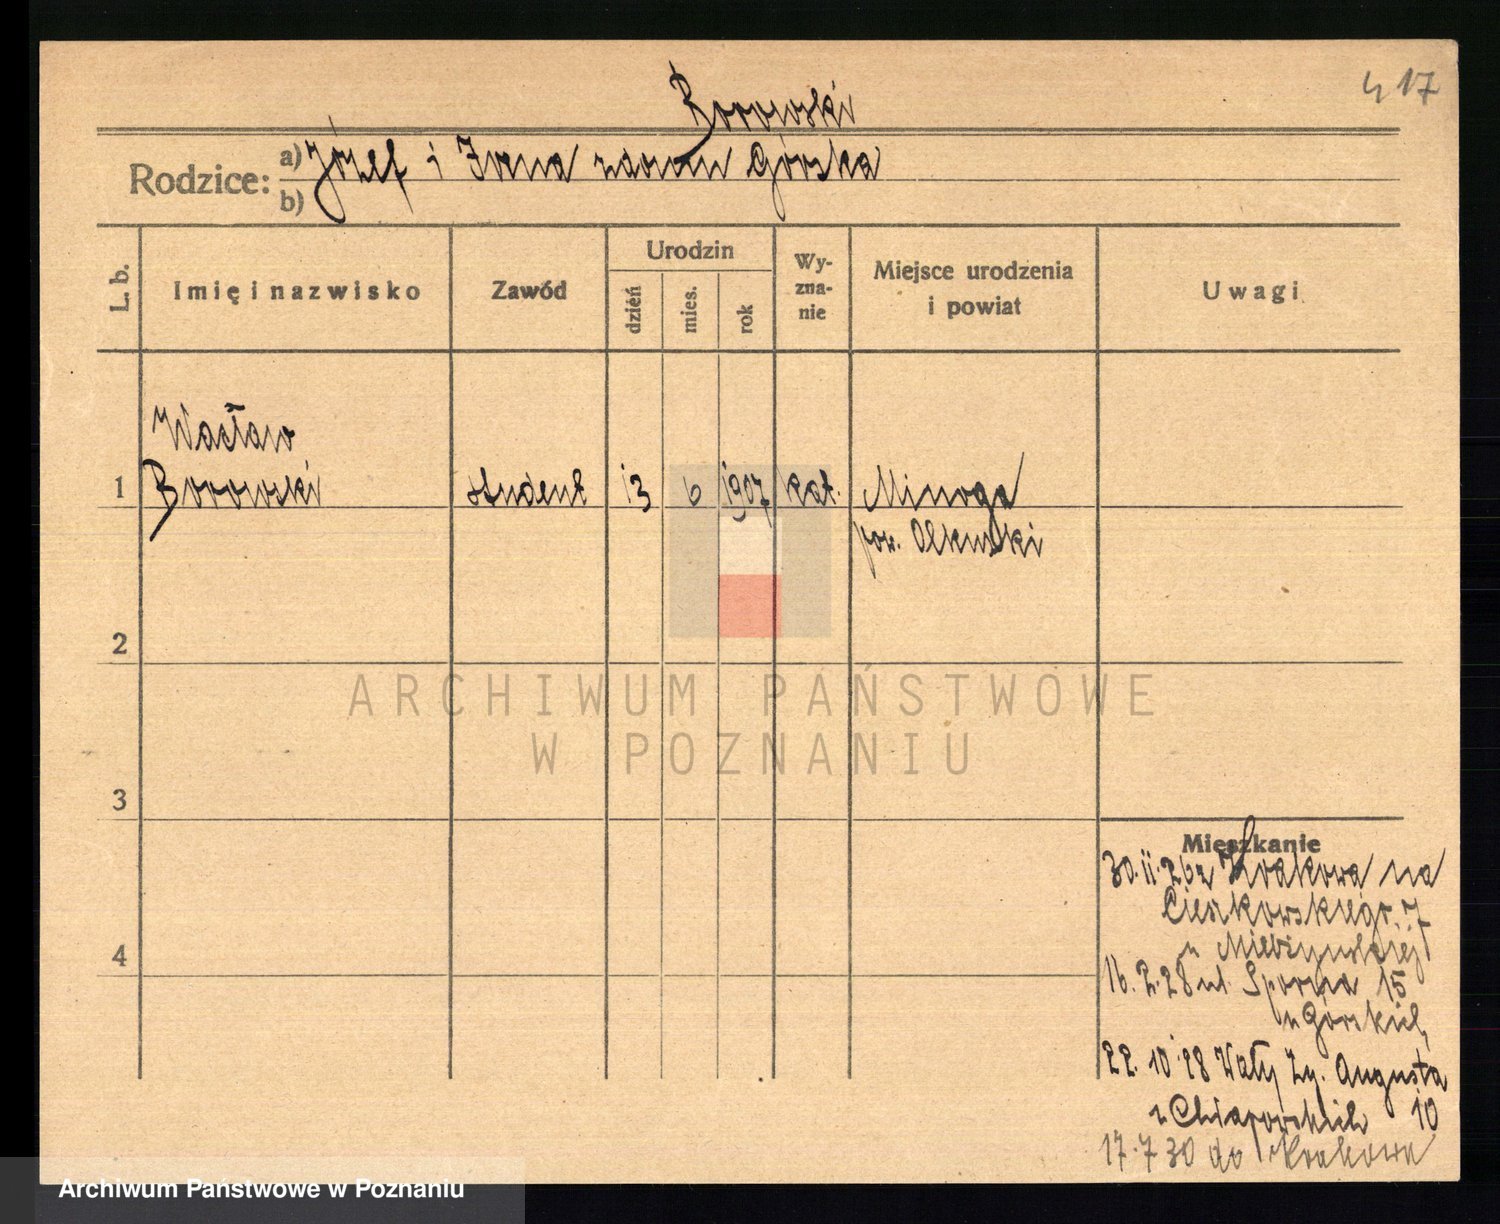 417
Borowski
Rodzice: a) Józef i Irena z domu Górska
b)
L. b. Imię i nazwisko Zawód Urodzin dzień mies. rok Wyznanie Miejsce urodzenia i powiat Uwagi
Wacław
1 Borowski student 13 6 1907 kat. Minoga
pow. Olkuski
2
3
4
Mieszkanie
30. 11. 26 z Krakowa na
Cieszkowskiego 7
u
16. 2. 28 ul. Sporna 15
u Górskich
22. 10. 28 Wały Zyg. Augusta
10
17. 7. 30 do Krakowa
ARCHIWUM PAŃSTWOWE
W POZNANIU
Archiwum Państwowe w Poznaniu